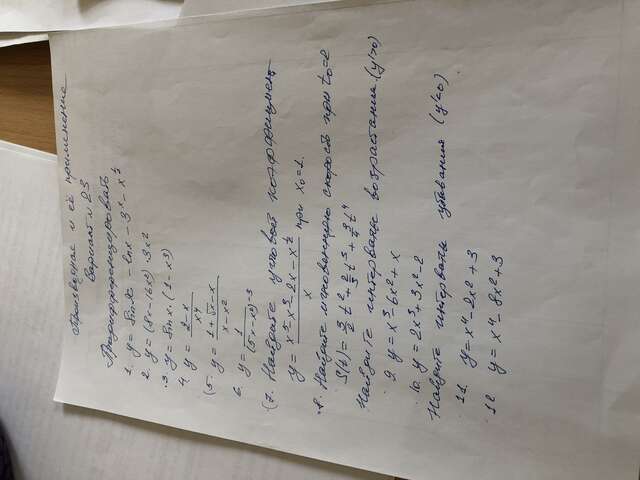 Производная и её применение
Вариант № 23
Продифференцировать
1. y = sin x - ln x - 3^x - x^{1/2}
2. y = (3x - 16x²) · 3x²
3. y = sin x · (1 - x³)
4. y = (2 - x) / x⁴
5. y = (1 + √x - x) / (x - x²)
6. y =
7. Найдите угловой коэффициент
при x₀ = 1.
8. Найдите мгновенную скорость при t₀ = 2
Найдите интервалы возрастания (y' > 0)
9. y = x³ - 6x² + x
10. y = 2x³ + 3x² - 2
Найдите интервалы убывания (y' < 0)
11. y = x⁴ - 2x² + 3
12. y = x⁴ - 8x² + 3